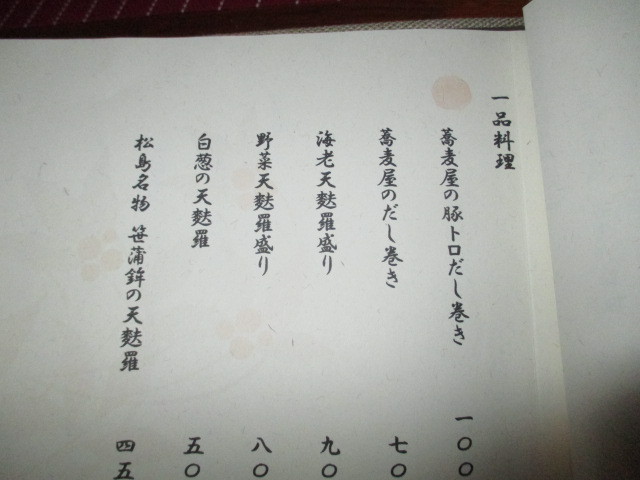 一品料理
蕎麦屋の豚トロだし巻き 一〇〇
蕎麦屋のだし巻き 七〇
海老天麩羅盛り 九〇
野菜天麩羅盛り 八〇
白葱の天麩羅 五〇
松島名物 笹蒲鉾の天麩羅 四五